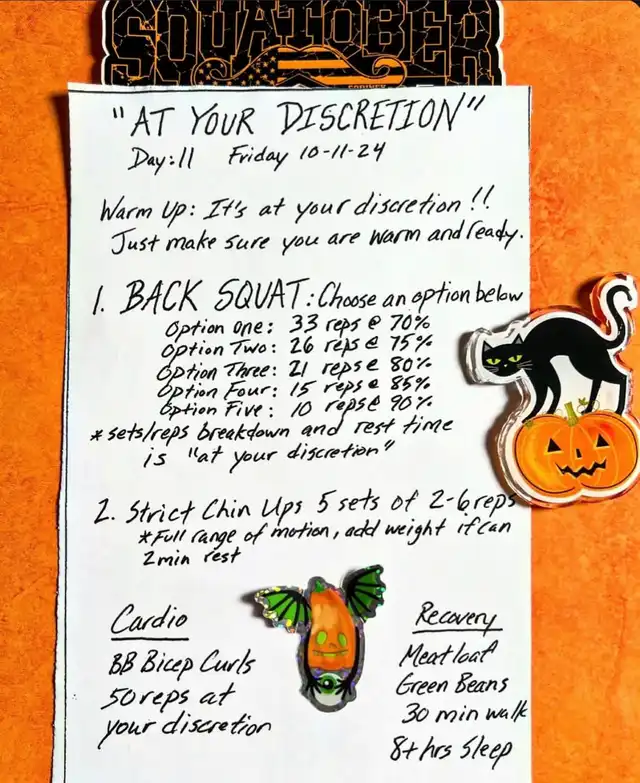 SQUATOBER
"AT YOUR DISCRETION"
Day:11 Friday 10-11-24
Warm Up: It's at your discretion!!
Just make sure you are warm and ready.
1. BACK SQUAT: Choose an option below
Option One: 33 reps @ 70%
Option Two: 26 reps @ 75%
Option Three: 21 reps @ 80%
Option Four: 15 reps @ 85%
Option Five: 10 reps @ 90%
*sets/reps breakdown and rest time
is "at your discretion"
2. Strict Chin Ups 5 sets of 2-6 reps
*Full range of motion, add weight if can
2min rest
Cardio
BB Bicep Curls
50 reps at
your discretion
Recovery
Meatloaf
Green Beans
30 min walk
8+ hrs Sleep